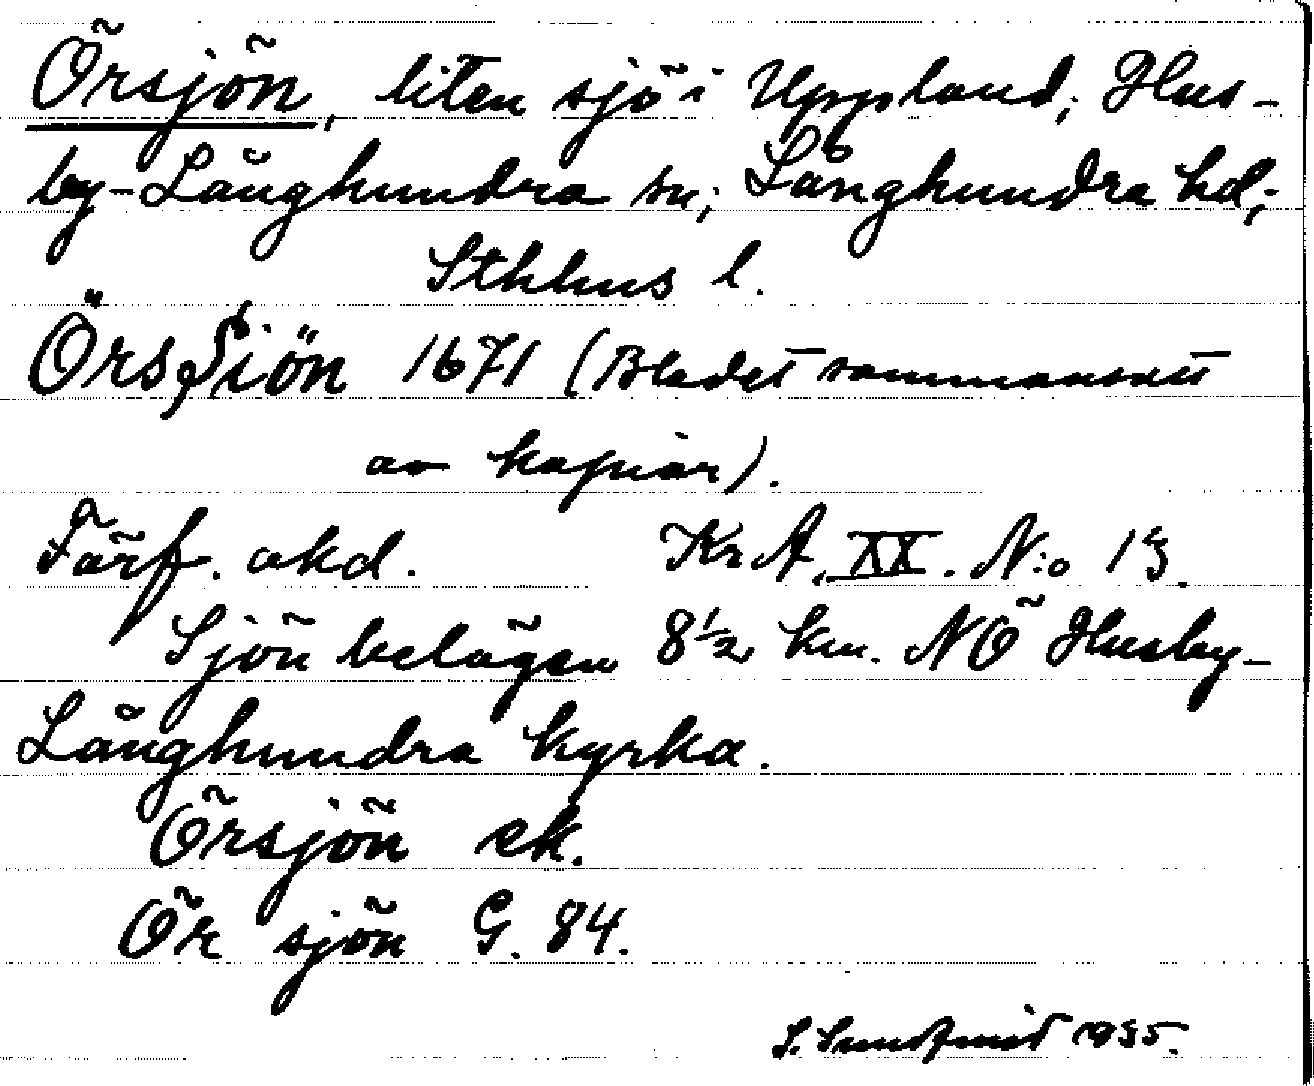 Örsjön, liten sjö i Uppland, Hus-
by-Långhundra sn; Långhundra hd;
Sthlms l.
ÖrsSiön 1671 (Bladet sammansatt
av kopior).
Förf. okd. KrA, XX. N:o 13.
Sjön belägen 8½ km. NÖ Husby-
Långhundra kyrka.
Örsjön ek.
Ör sjön G. 84.
S. Sundqvist 1935.